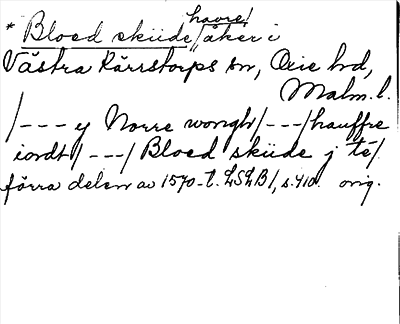 * Bloed skiide, / havre/åker i
Västra Kärrstorps sn, Oxie hd,
Malm. l.
/--- y Norre wongh/---/hauffre
iordt/---/ Bloed skiide j té/
förra delen av 1570-t. LSLB1, s. 410. orig.